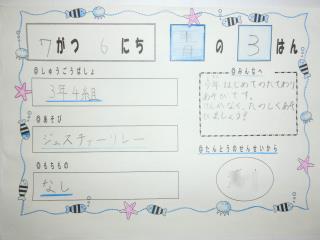 7がつ6にち 青の3はん
◎しゅうごうばしょ
3年4組
◎あそび
ジェスチャーリレー
◎もちもの
なし
◎みんなへ
今年はじめてのたてわり
あそびです。
けがなく、たのしくあそ
びましょう!
◎たんとうのせんせいから